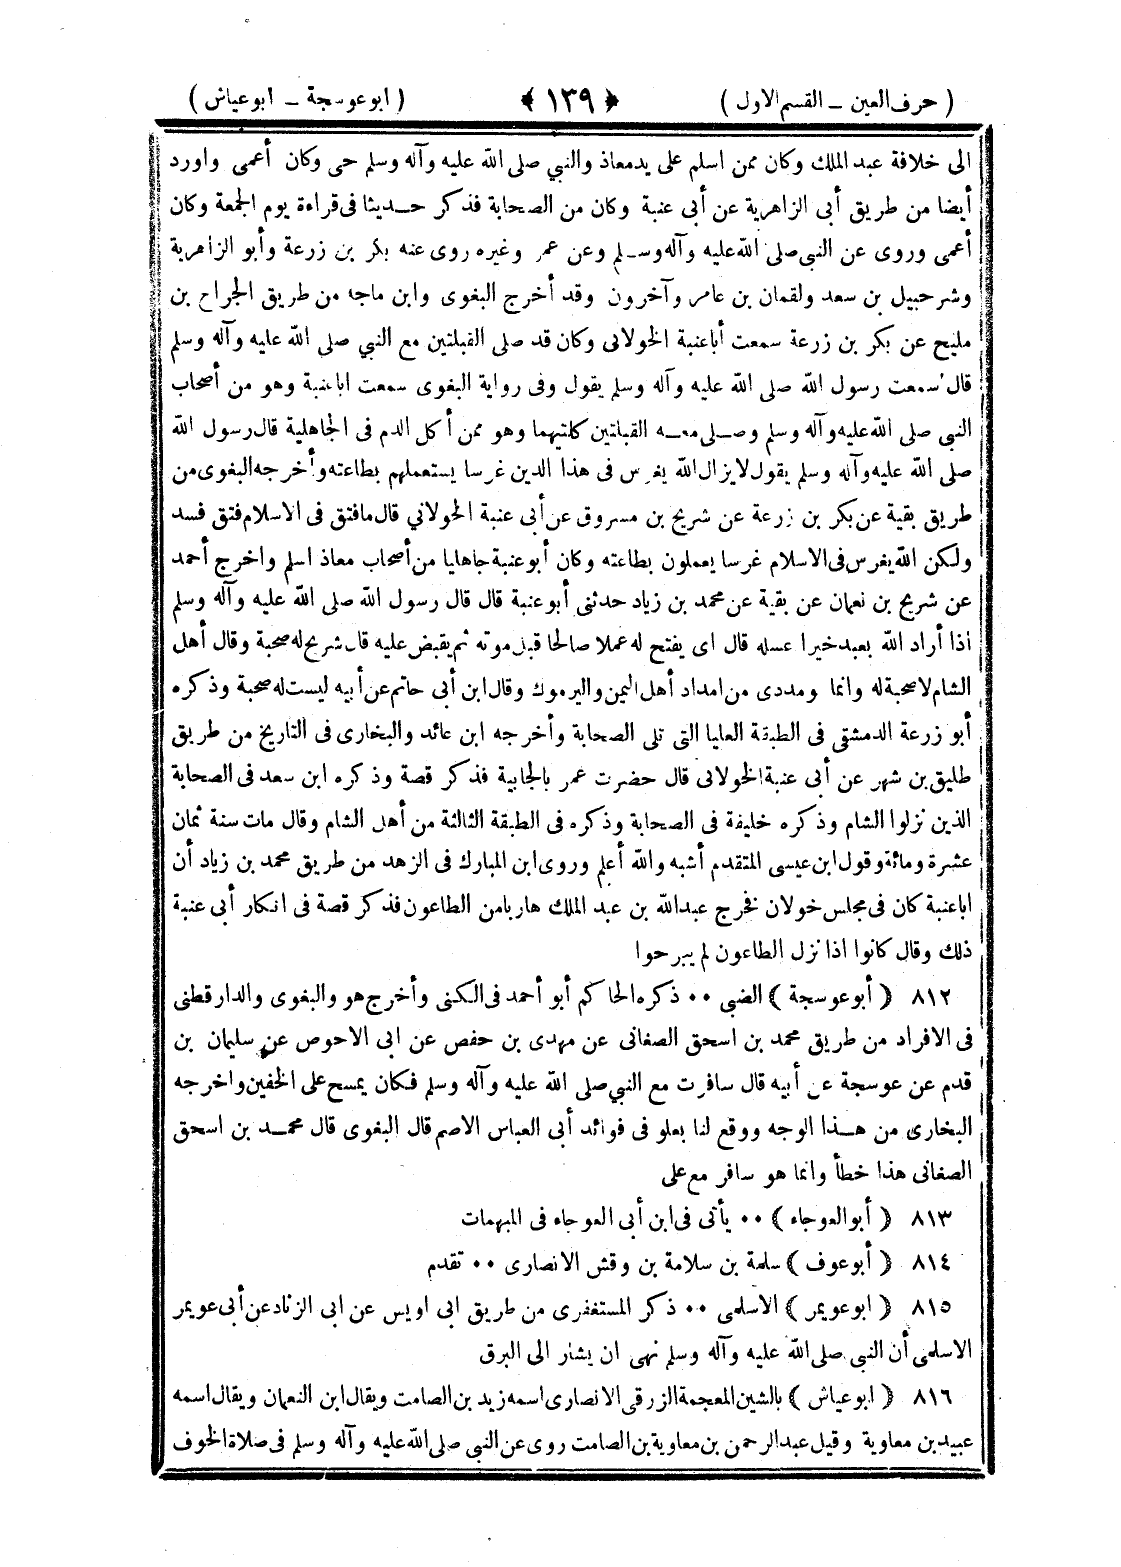 ( حرف العين ــ القسم الاول ) ﴿ ١٣٩ ﴾ ( ابوعوسجة ــ ابوعياش )
الى خلافة عبد الملك وكان ممن اسلم على يدمعاذ والنبي صلى الله عليه وآله وسلم حى وكان أعمى واورد
أيضا من طريق أبى الزاهرية عن أبى عنبة وكان من الصحابة فذكر حديثا فى قراءة يوم الجمعة وكان
أعمى وروى عن النبى صلى الله عليه وآله وسلم وعن عمر وغيره روى عنه بكر بن زرعة وأبو الزاهرية
وشرحبيل بن سعد ولقمان بن عامر وآخرون وقد أخرج البغوى وابن ماجه من طريق الجراح بن
مليح عن بكر بن زرعة سمعت أباعنبة الخولانى وكان قد صلى القبلتين مع النبي صلى الله عليه وآله وسلم
قال سمعت رسول الله صلى الله عليه وآله وسلم يقول وفى رواية البغوى سمعت اباعنبة وهو من أصحاب
النبى صلى الله عليه وآله وسلم وصلى معه القبلتين كلتيهما وهو ممن أكل الدم فى الجاهلية قال رسول الله
صلى الله عليه وآله وسلم يقول لايزال الله يغرس فى هذا الدين غرسا يستعملهم بطاعته وأخرجه البغوى من
طريق بقية عن بكر بن زرعة عن شريح بن مسروق عن أبى عنبة الخولاني قال مافتق فى الاسلام فتق فسد
ولكن الله يغرس فى الاسلام غرسا يعملون بطاعته وكان أبوعنبة جاهليا من أصحاب معاذ اسلم واخرج أحمد
عن شريح بن نعمان عن بقية عن محمد بن زياد حدثنى أبوعنبة قال قال رسول الله صلى الله عليه وآله وسلم
اذا أراد الله بعبد خيرا عسله قال اى يفتح له عملا صالحا قبل موته ثم يقبض عليه قال شريح له صحبة وقال أهل
الشام لاصحبة له وانما ومددى من امداد أهل اليمن واليرموك وقال ابن أبى حاتم عن أبيه ليست له صحبة وذكره
أبو زرعة الدمشقى فى الطبقة العليا التى تلى الصحابة وأخرجه ابن عائد والبخارى فى التاريخ من طريق
طليق بن شهر عن أبى عنبة الخولانى قال حضرت عمر بالجابية فذكر قصة وذكره ابن سعد فى الصحابة
الذين نزلوا الشام وذكره خليفة فى الصحابة وذكره فى الطبقة الثالثة من أهل الشام وقال مات سنة ثمان
عشرة ومائة وقول ابن عيسى المتقدم أشبه والله أعلم وروى ابن المبارك فى الزهد من طريق محمد بن زياد أن
اباعنبة كان فى مجلس خولان فخرج عبدالله بن عبد الملك هاربا من الطاعون فذكر قصة فى انكار أبى عنبة
ذلك وقال كانوا اذا نزل الطاعون لم يبرحوا
٨١٢ ﴿ أبوعوسجة ﴾ الضبى ٠٠ ذكره الحاكم أبو أحمد فى الكنى وأخرج هو والبغوى والدارقطنى
فى الافراد من طريق محمد بن اسحق الصغانى عن مهدى بن حفص عن ابى الاحوص عن سليمان بن
قدم عن عوسجة عن أبيه قال سافرت مع النبي صلى الله عليه وآله وسلم فكان يمسح على الخفين واخرجه
البخارى من هذا الوجه ووقع لنا بعلو فى فوائد أبى العباس الاصم قال البغوى قال محمد بن اسحق
الصغانى هذا خطأ وانما هو سافر مع على
٨١٣ ﴿ أبوالعوجاء ﴾ ٠٠ يأتى فى ابن أبى العوجاء فى المبهمات
٨١٤ ﴿ أبوعوف ﴾ سلمة بن سلامة بن وقش الانصارى ٠٠ تقدم
٨١٥ ﴿ ابوعويمر ﴾ الاسلمى ٠٠ ذكر المستغفرى من طريق ابى اويس عن ابى الزناد عن أبى عويمر
الاسلمى أن النبى صلى الله عليه وآله وسلم نهى ان يشار الى البرق
٨١٦ ﴿ ابوعياش ﴾ بالشين المعجمة الزرقى الانصارى اسمه زيد بن الصامت ويقال ابن النعمان ويقال اسمه
عبيد بن معاوية وقيل عبد الرحمن بن معاوية بن الصامت روى عن النبى صلى الله عليه وآله وسلم فى صلاة الخوف